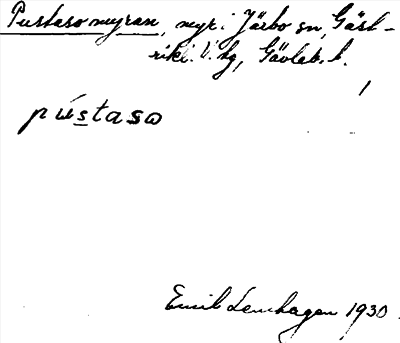 Pustasomyran, myr i Järbo sn, Gäst-
rikl. V. hg, Gävleb. l.
pústaso
Emil Lenhagen 1930.